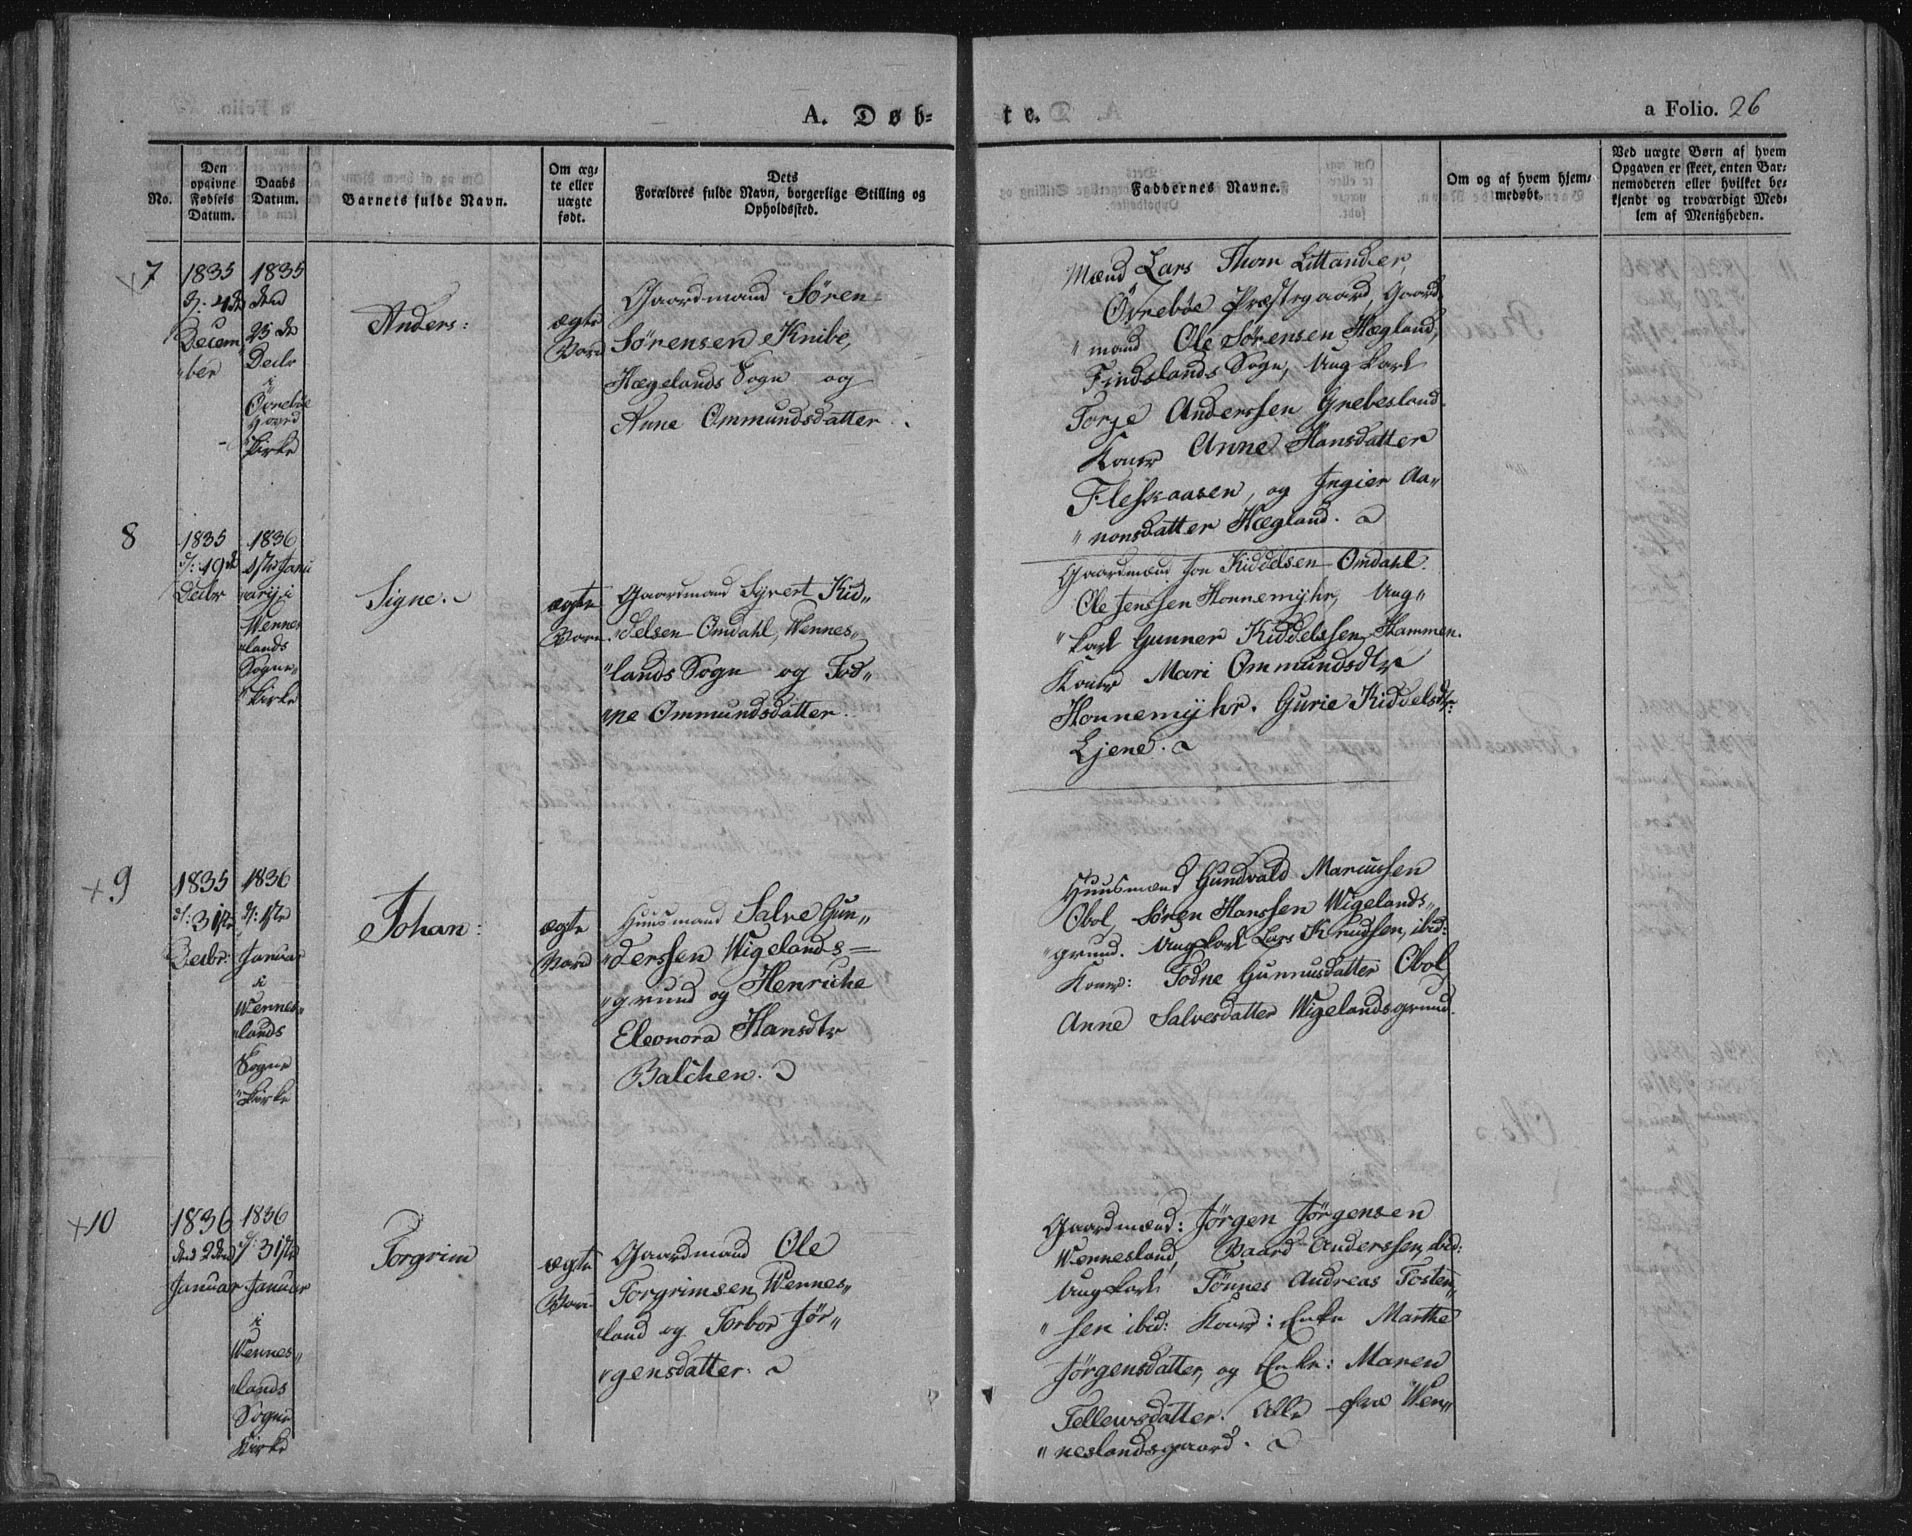 A. Døb=
te.
a Folio. 26
No.
Den
opgivne
Fødsels
Datum.
Daabs
Datum.
Barnets fulde Navn.
Om æg=
te eller
uægte
født.
Dets
Forældres fulde Navn, borgerlige Stilling og
Opholdssted.
Faddernes Navne.
Om og af hvem hjem=
medøbt.
Ved uægte Børn af hvem
Opgaven er skeet, enten Bar=
nemoderen eller hvilket be=
kjendt og troværdigt Med=
lem af Menigheden.
7
1835
d: 4de
Decem
"ber
1835
den
25de
Decbr
i
Øvrebøe
Kirke
Anders:
ægte
Barn
Gaardmand Sören
Sörensen Knibe,
Hægelands Sogn og
Anne Ommundsdatter
Mænd Lars Thom
Øvrebøe Præstegaard, Gaard
" mand Ole Sörensen Hægland,
Findslands Sogn, Ung Karl
Torje Anderssen Grebesland.
Koner Anne Hansdatter
Fleskaasen, og Ingier Aa"
" nonsdatter Hægland.
8
1835
d: 19de
Decbr
1836
1ste Janu
"arij i
Wennes
"lands
Sogne
"Kirke
Signe.
ægte
Barn.
Gaardmand Syvert Kid"
"delsen Omdahl, Wennes"
"lands Sogn og Tod"
"ne Ommundsdatter.
Gaardmænd Jon Kiddelsen Omdahl.
Ole Jenssen Honnemyhr, Ung"
" karl Gunner Kiddelssen Hammen.
Koner Mari Ommundsdtr
Honnemyhr. Gurie Kiddelsdtr:
Ljene.
+9
1835
d: 31ste
Decbr:
1836
d: 1ste
Januar
i
Wennes"
"lands
Sogne
"Kirke
Johan:
ægte
Barn
Huusmand Salve Gun"
"derssen Wigelands=
"grund og Henriche
Eleonora Hansdtr
Balchen.
Huusmænd Gundvald Mariussen
Obol, Sören Hanssen Wigelands"
"grund. Ungkarl Lars Knudsen, ibid:
Koner: Todne Gunnusdatter Obol
Anne Salvesdatter Wigelandsgrund.
+10
1836
den 2den
Januar
1836
d: 31te
Januar
i
Wennes"
"lands
Sogne
Kirke
Torgrim
ægte
Barn
Gaardmand Ole
Torgrimsen Wennes"
"land og Torbor Jör"
"gensdatter.
Gaardmænd: Jörgen Jörgensen
Wennesland, Baard Anderssen, ibid:
Ungkarl: Tönnes Andreas Tosten"
" sen ibid: Koner: Enke Marthe
Jörgensdatter, og Enke: Maren
Tellewsdatter. Alle fra Wen"
" neslandsgaard.